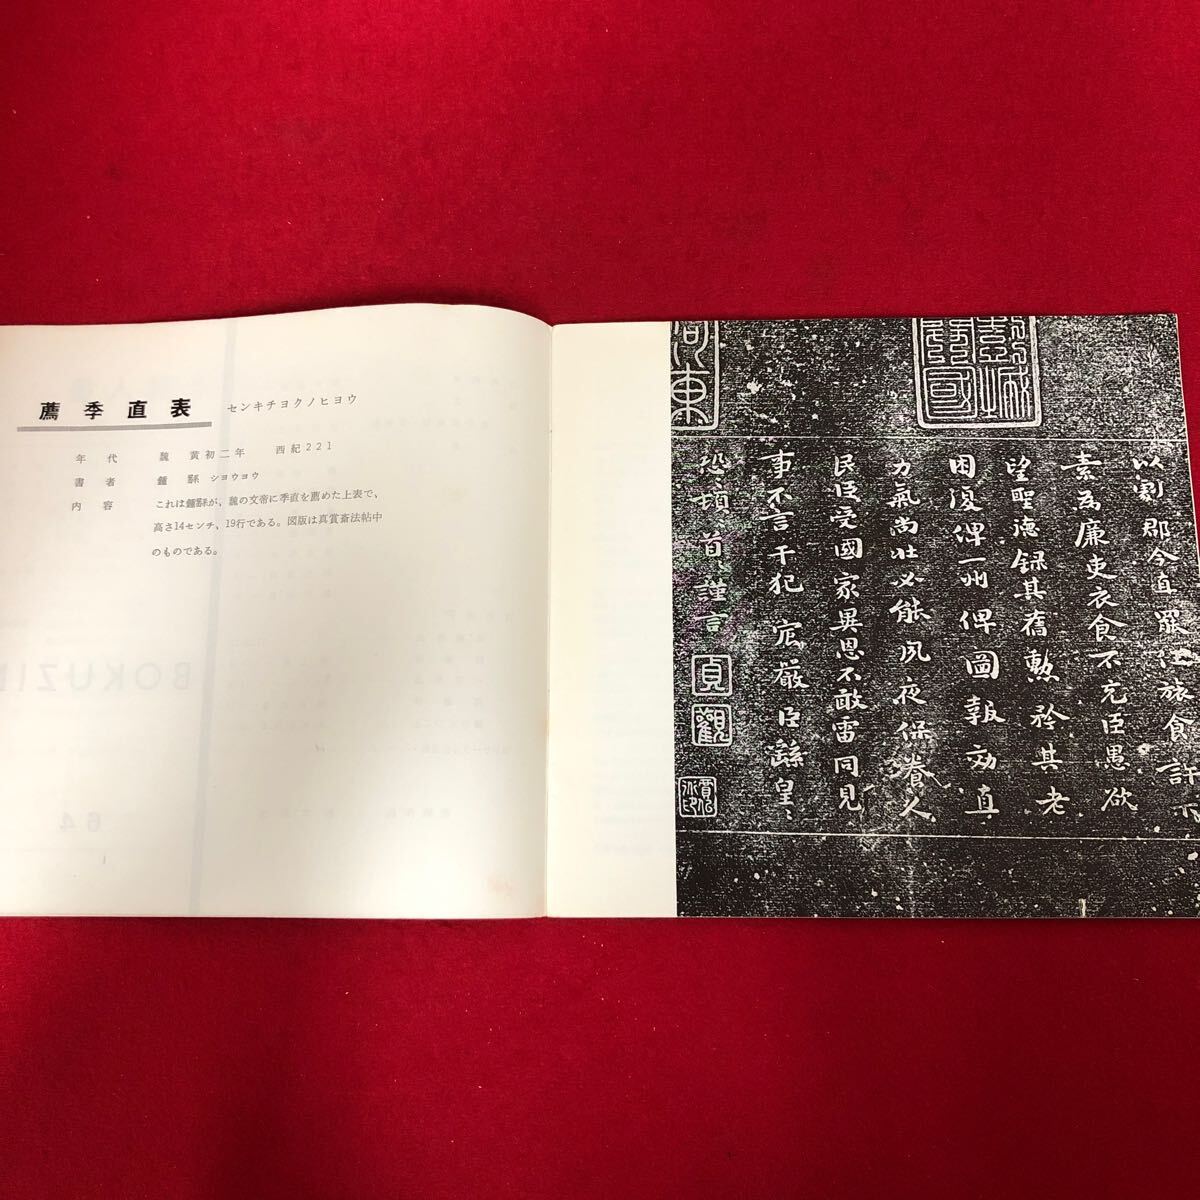 薦季直表 センキチヨクノヒヨウ
年代 魏 黄初二年 西紀221
書者 鍾繇 シヨウヨウ
内容 これは鍾繇が、魏の文帝に季直を薦めた上表で、
高さ14センチ、19行である。図版は真賞斎法帖中
のものである。
以劇郡今直罷任旅食許下
素為廉吏衣食不充臣愚欲
望聖德錄其舊勳矜其老
困復俾一州俾圖報効直
力氣尚壯必能夙夜保養人
民臣受國家異恩不敢雷同見
事不言干犯宸嚴臣繇皇〻
恐〻頓〻首〻謹言
貞觀
河東
BOKUZI
64